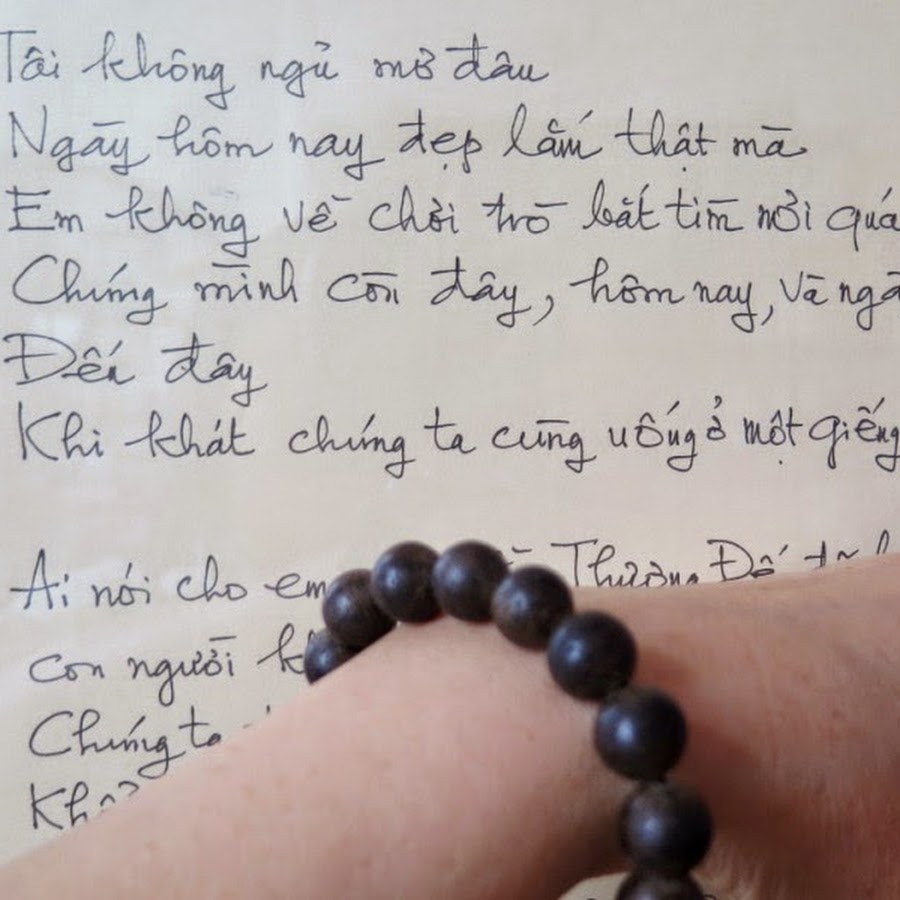 Tôi không ngủ mơ đâu
Ngày hôm nay đẹp lắm thật mà
Em không về chơi trò bắt tìm nơi quá
Chúng mình còn đây, hôm nay, và ngà
Đến đây
Khi khát chúng ta cùng uống ở một giếng
Ai nói cho em Thượng Đế
con người
Chúng ta